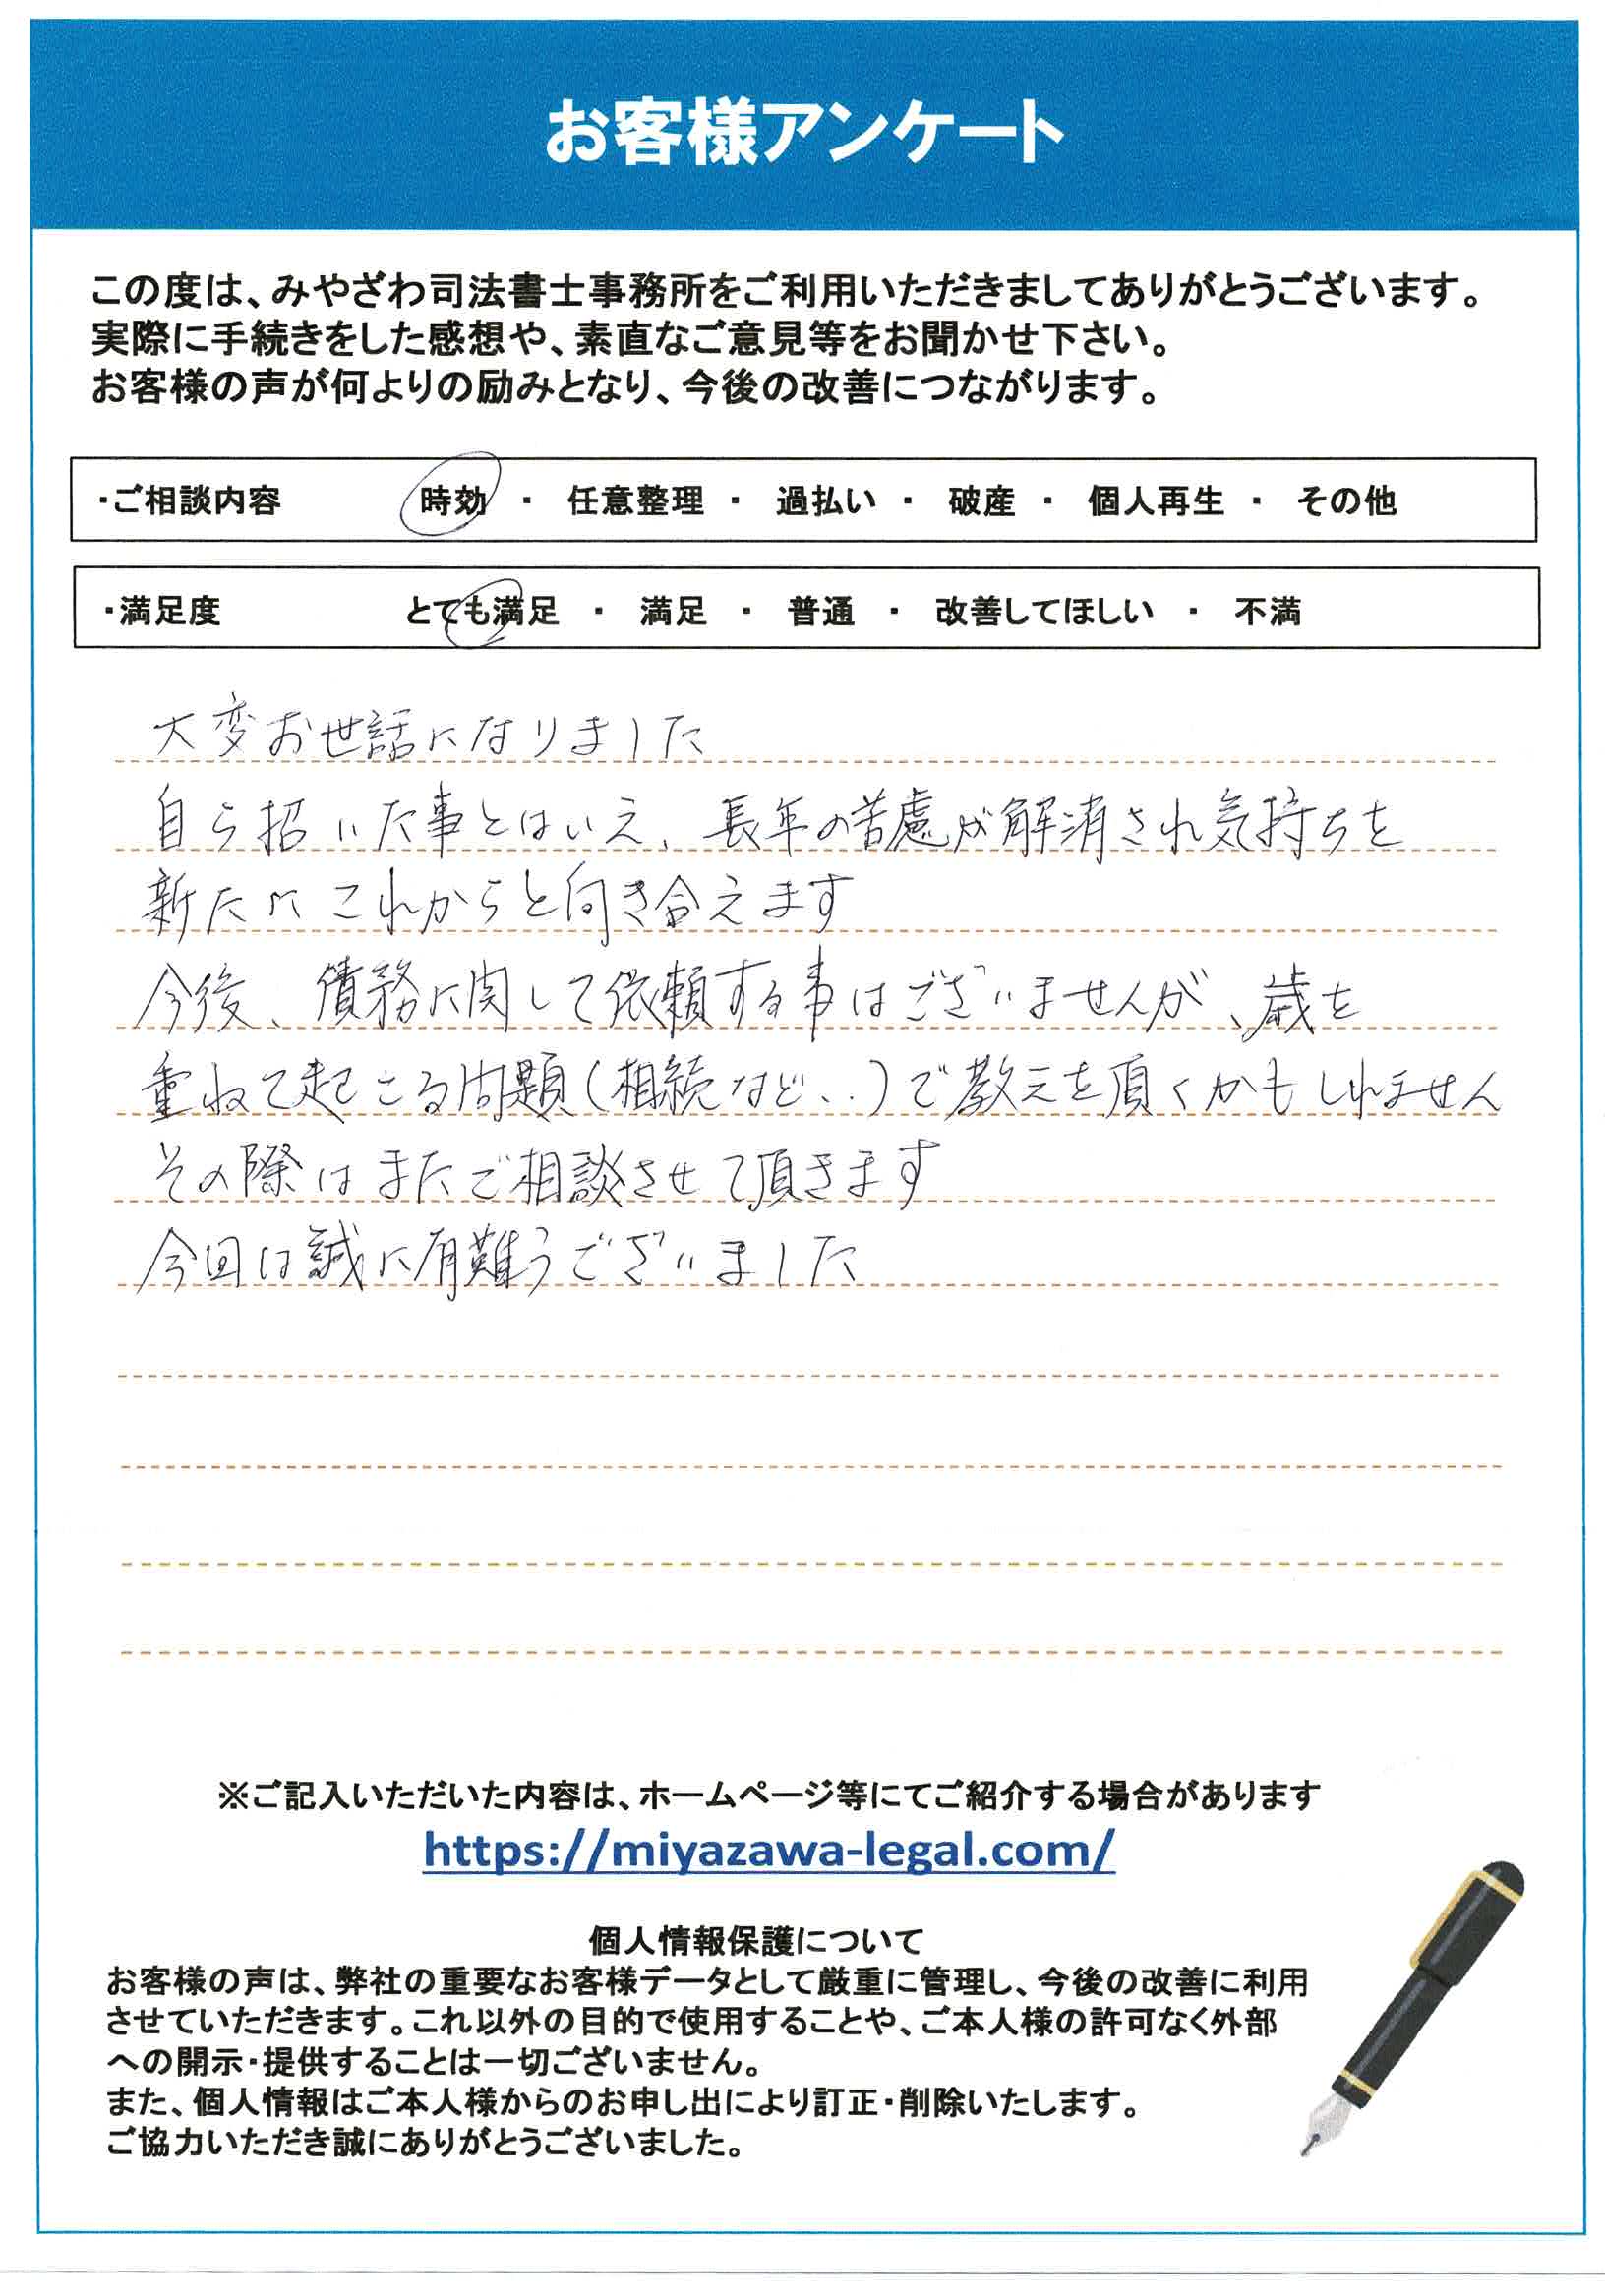 お客様アンケート
この度は、みやざわ司法書士事務所をご利用いただきましてありがとうございます。
実際に手続きをした感想や、素直なご意見等をお聞かせ下さい。
お客様の声が何よりの励みとなり、今後の改善につながります。
・ご相談内容 時効 ・ 任意整理 ・ 過払い ・ 破産 ・ 個人再生 ・ その他
・満足度 とても満足 ・ 満足 ・ 普通 ・ 改善してほしい ・ 不満
大変お世話になりました
自ら招いた事とはいえ、長年の苦慮が解消され気持ちを
新たにこれからと向き合えます
今後、債務に関して依頼する事はございませんが、歳を
重ねて起こる問題(相続など...)で教えを頂くかもしれません
その際はまたご相談させて頂きます
今回は誠に有難うございました
※ご記入いただいた内容は、ホームページ等にてご紹介する場合があります
https://miyazawa-legal.com/
個人情報保護について
お客様の声は、弊社の重要なお客様データとして厳重に管理し、今後の改善に利用
させていただきます。これ以外の目的で使用することや、ご本人様の許可なく外部
への開示・提供することは一切ございません。
また、個人情報はご本人様からのお申し出により訂正・削除いたします。
ご協力いただき誠にありがとうございました。